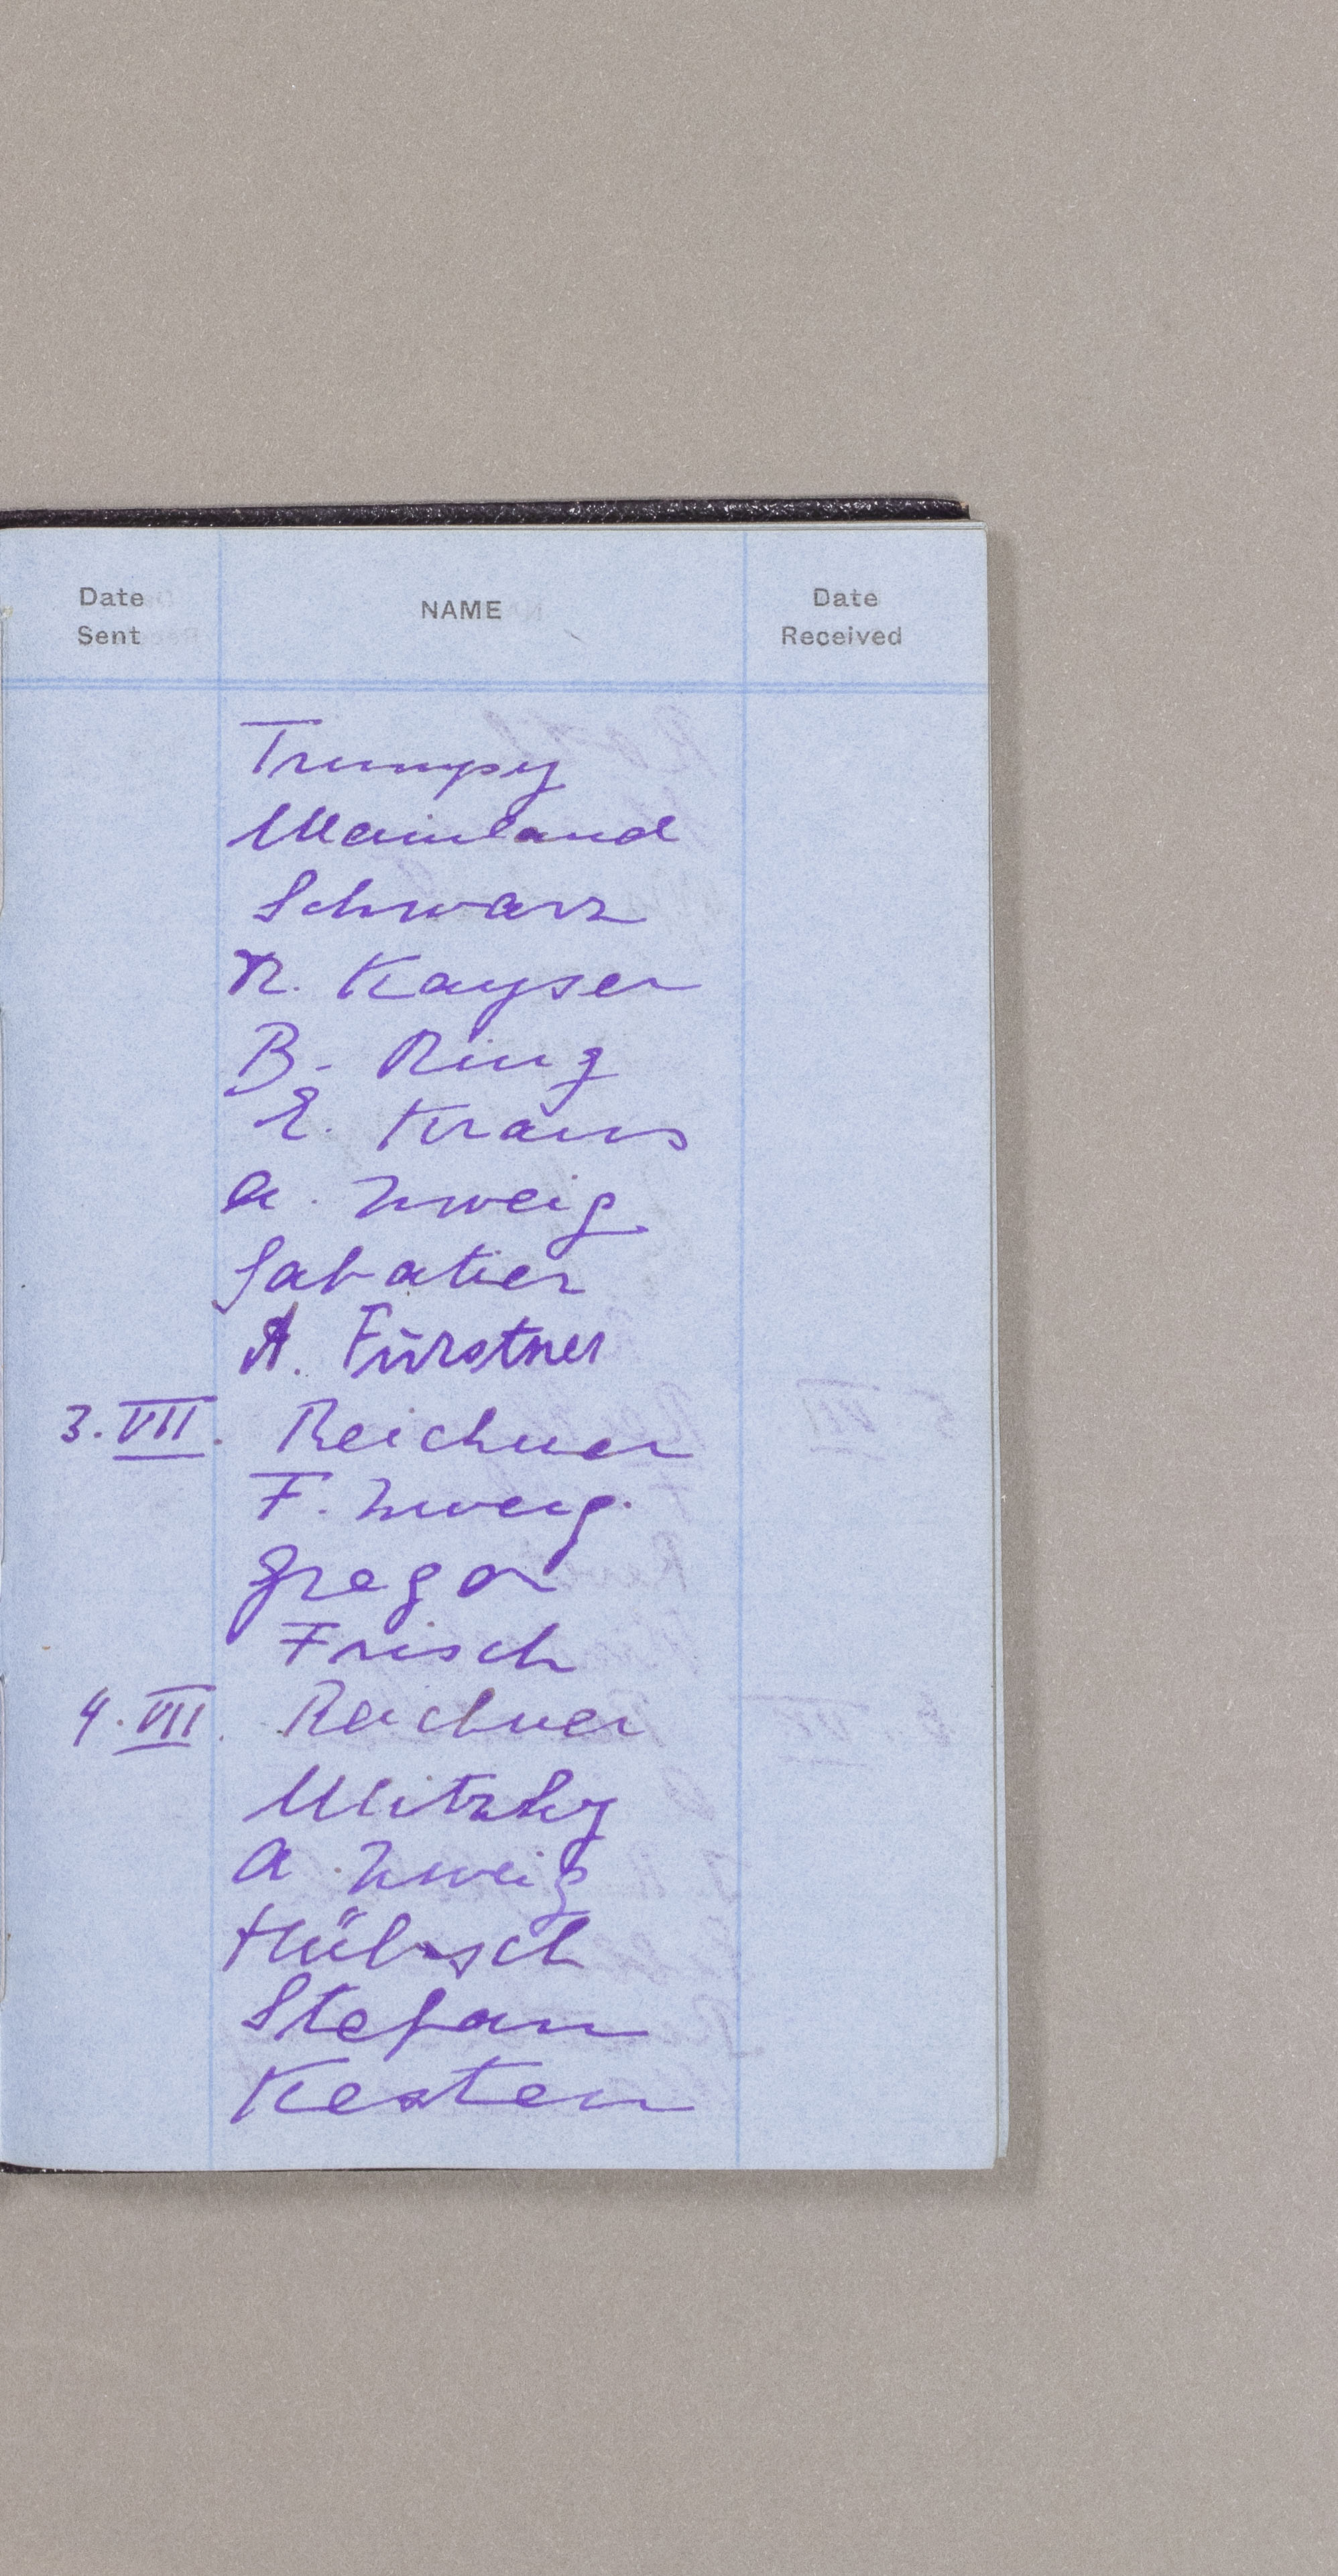 Date Sent NAME Date Received
Trumpy
Mainland
Schwarz
R. Kayser
B. Ring
E. Kraus
A. Zweig
Sabatier
A. Fürstner
3. VII. Reichner
F. Zweig.
Gregor
Frisch
4. VII. Reichner
Mitzky
A. Zweig
Hübsch
Stefan
Kesten